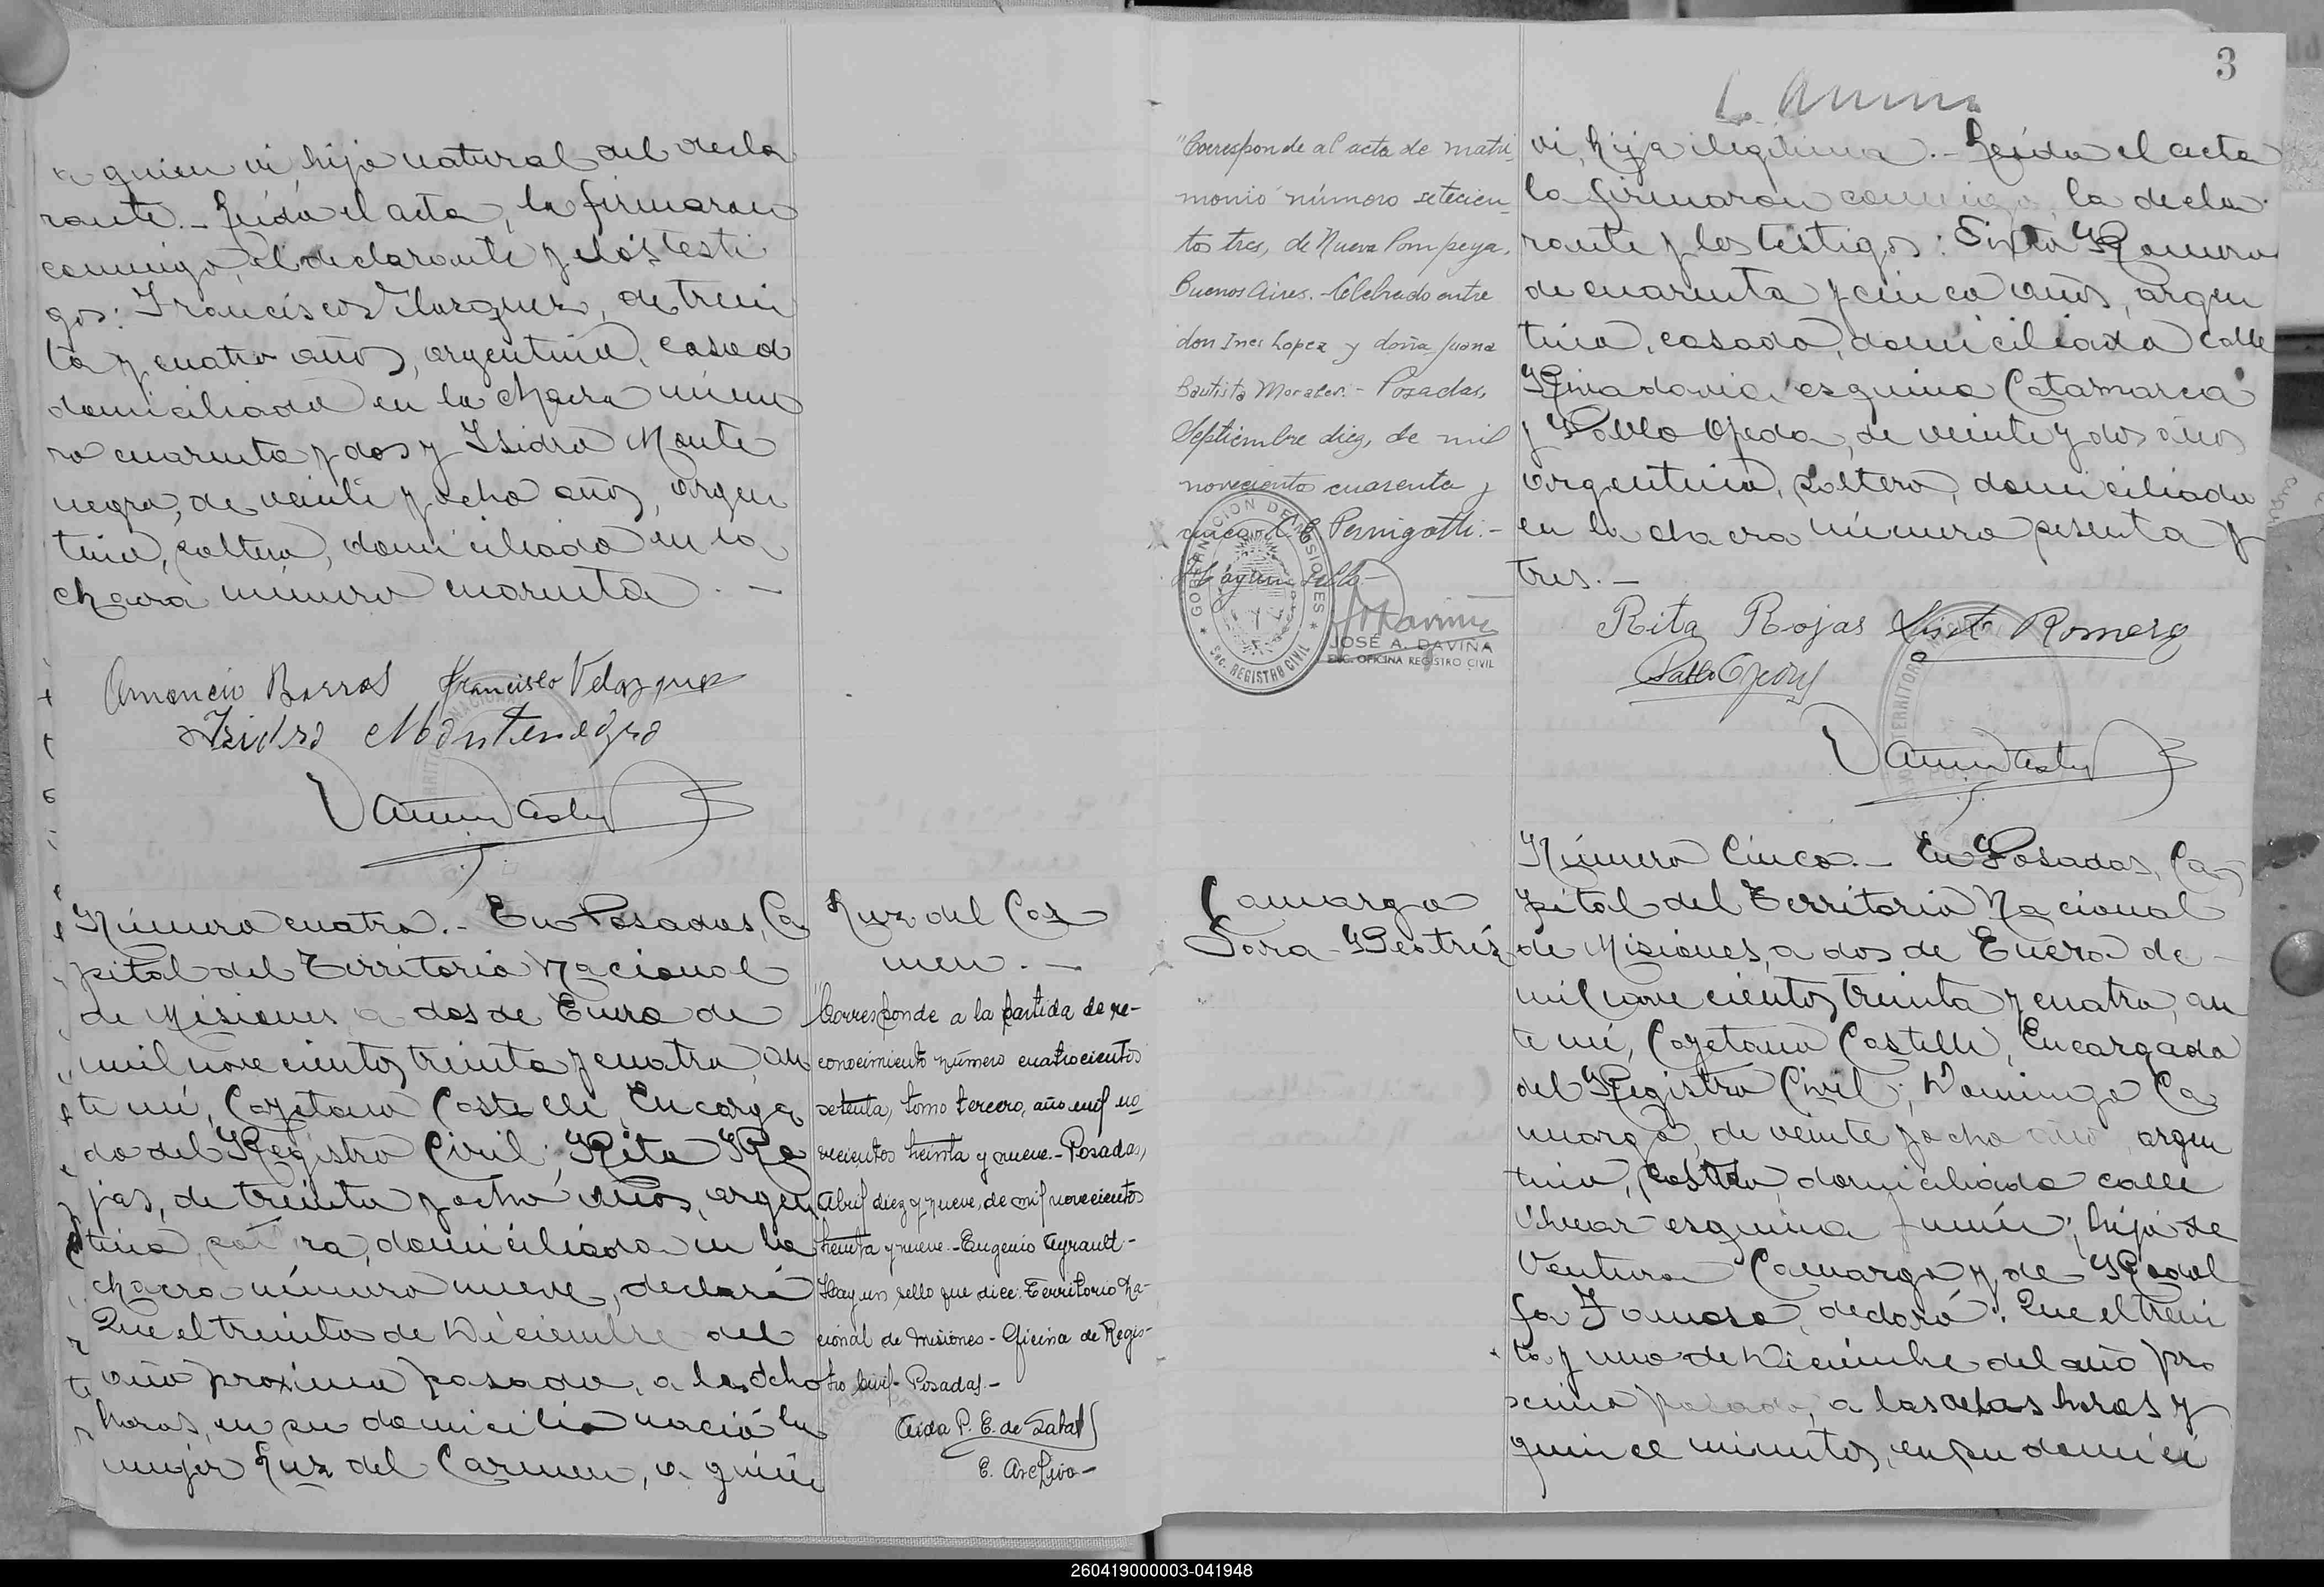 a quien vi hijo natural del decla
rante.- Leída el acta, la firmaron
conmigo, el declarante y los testi
gos: Francisco Velazquez, de trein
ta y cuatro años, argentino, casado
domiciliado en la chacra núme
ro cuarenta y dos y Isidro Monte
negro, de veinte y ocho años, argen
tino, soltero, domiciliado en la
chacra número cuarenta. -
Amancio Barros Francisco Velazquez
Isidro Montenegro
Número cuatro.- En Posadas, Ca
pital del Territorio Nacional
de Misiones a dos de Enero de
mil novecientos treinta y cuatro, an
te mí, Cayetano Castelli, Encarga
do del Registro Civil; Rita Ro
jas, de treinta y ocho años, argen
tina, domiciliada en la
chacra número nueve, declaró
Que el treinta de Diciembre del
año próximo pasado, a las ocho
horas, en su domicilio nació la
mujer Luz del Carmen, a quien
Luz del Car
men.-
"Corresponde a la partida de re-
conocimiento número cuatrocientos
setenta, tomo tercero, año mil no
vecientos treinta y nueve.- Posadas,
Abril diez y nueve, de mil novecientos
treinta y nueve.- Eugenio Ayrault-
Hay un sello que dice: Territorio Na-
cional de Misiones- Oficina de Regis-
tro Civil- Posadas.-
Aida P. E. de Zabal
E. Archivo-
3
"Corresponde al acta de matri
monio número setecien
tos tres, de Nueva Pompeya,
Buenos Aires. Celebrado entre
don Ines Lopez y doña Juana
Bautista Morales.- Posadas,
Septiembre diez, de mil
noveciento cuarenta y
cinco.- Pernigotti.-
Hay un sello-
GOBERNACION DE MISIONES
SEC. REGISTRO CIVIL
JOSÉ A. DAVIÑA
ENC. OFICINA REGISTRO CIVIL
vi, hija ilegítima.- Leída el acta
la firmaron conmigo, la decla
rante y los testigos: Sixto Romero
de cuarenta y cinco años, argen
tino, casado, domiciliado calle
Rivadavia esquina Catamarca
y Pablo Ojeda, de veinte y dos años
argentino, soltero, domiciliado
en la chacra número sesenta y
tres.-
Rita Rojas Sixto Romero
Pablo Ojeda
Camargo
Dora Beatríz
Número Cinco.- En Posadas, Ca
pital del Territorio Nacional
de Misiones, a dos de Enero de
mil novecientos treinta y cuatro, an
te mí, Cayetano Castelli, Encargado
del Registro Civil; Domingo Ca
margo, de veinte y ocho años, argen
tino, domiciliado calle
esquina Junín; hijo de
Ventura Camargo y de Rodol
fa, declaró: Que el trein
ta y uno de Diciembre del año pró
ximo pasado, a las horas y
quince minutos, en su domici
260419000003-041948